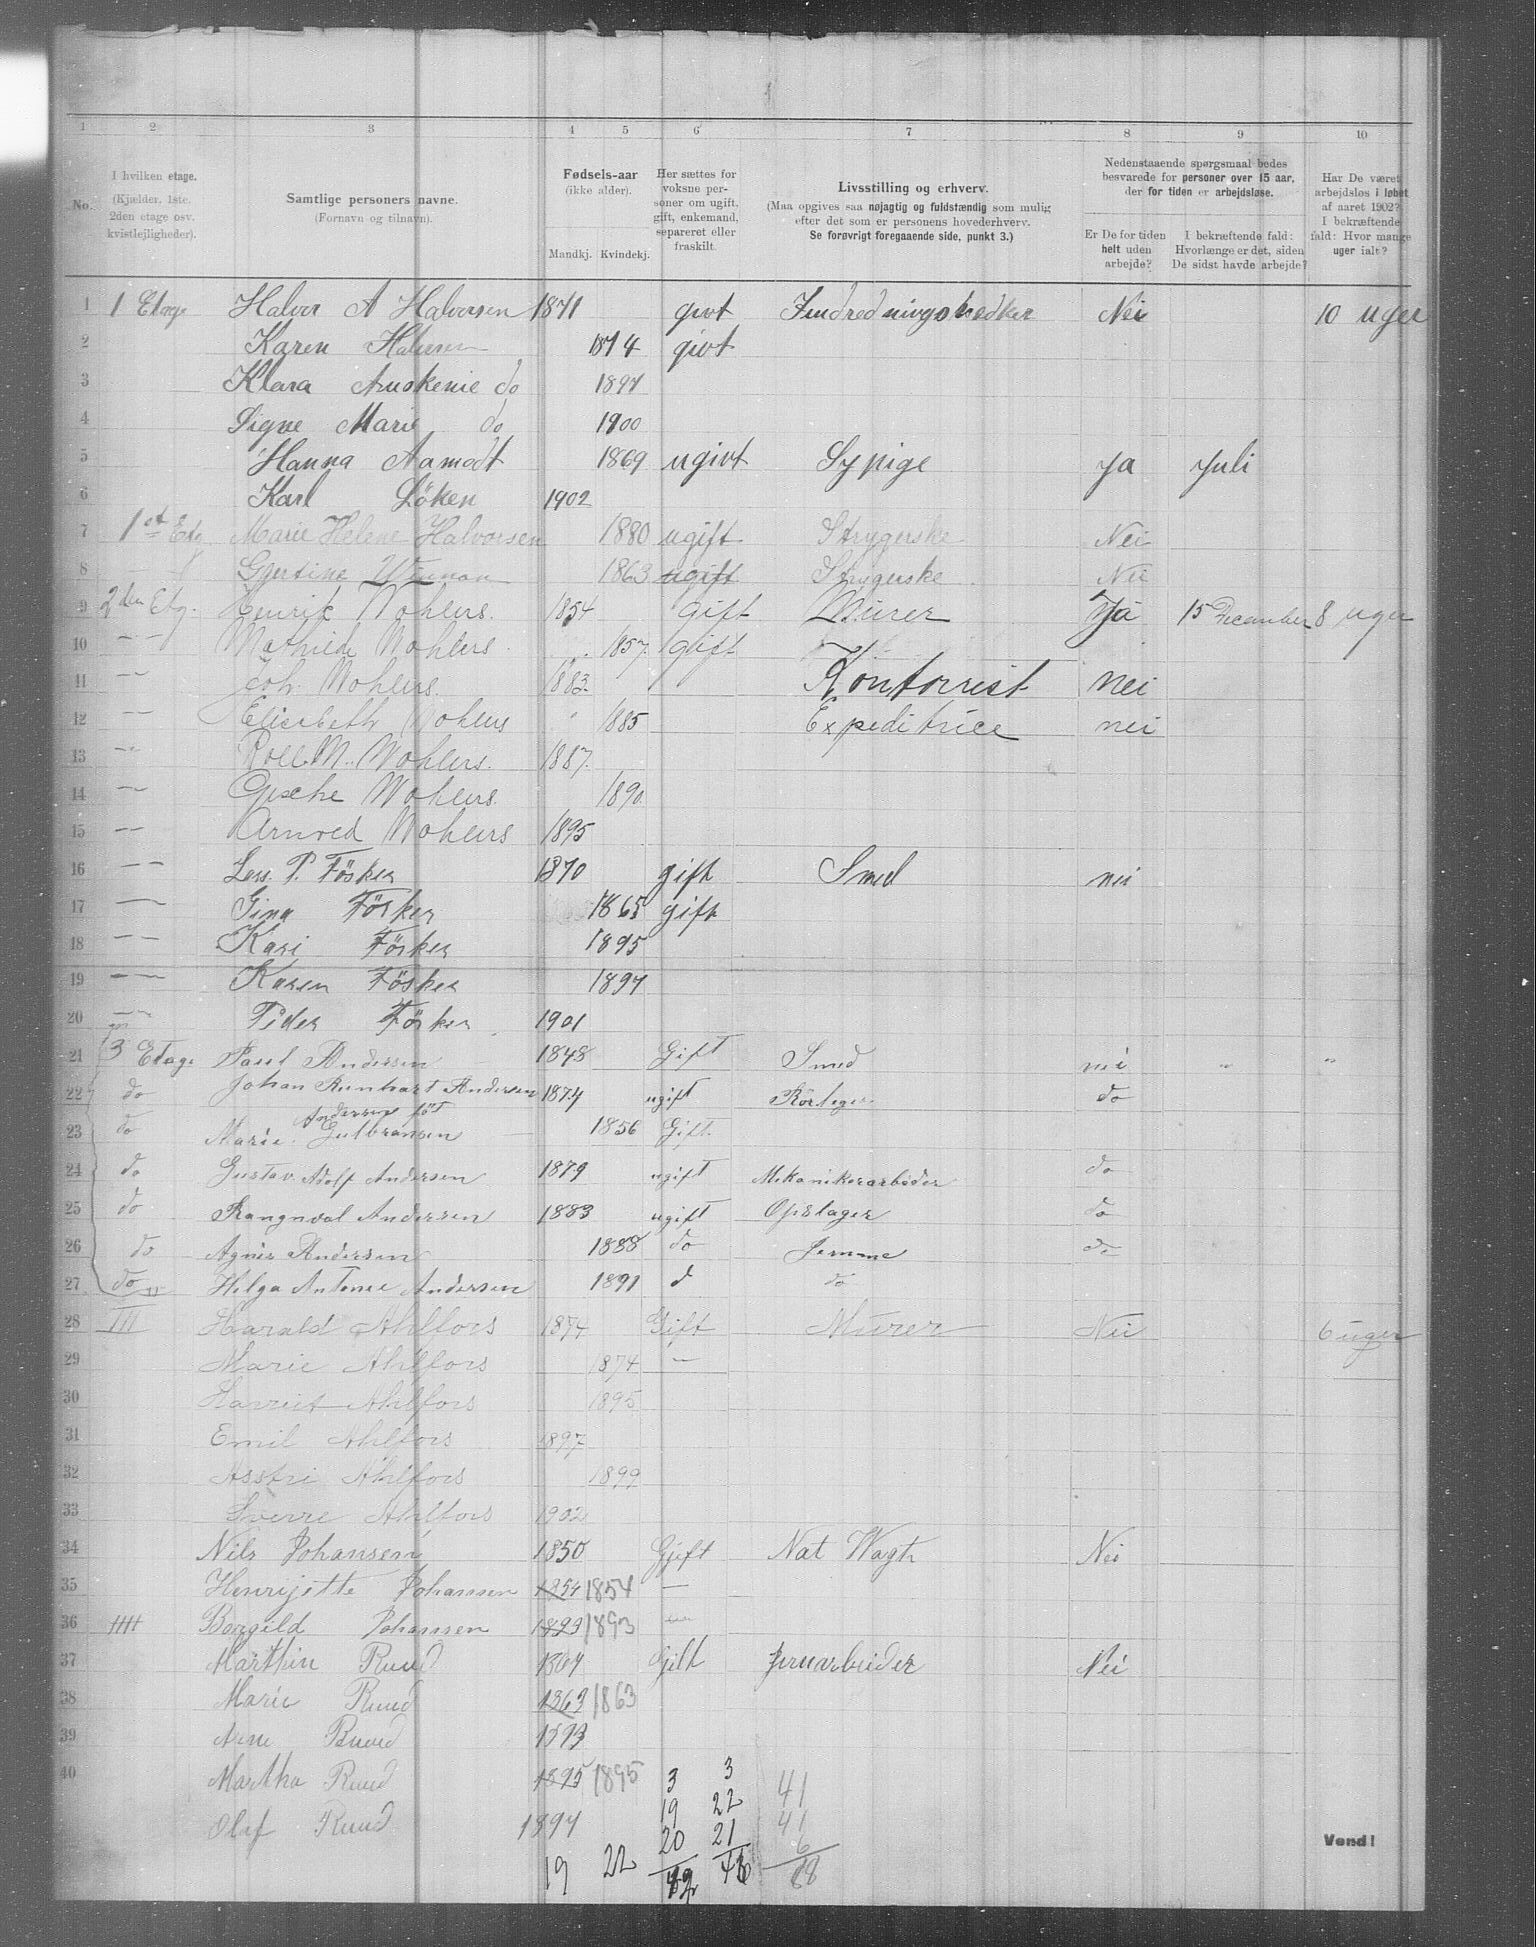 1 2 3 4 5 6 7 8 9 10
No.
I hvilken etage.
(Kjælder, 1ste,
2den etage osv.
kvistlejligheder).
Samtlige personers navne.
(Fornavn og tilnavn).
Fødsels-aar
(ikke alder).
Mandkj. Kvindekj.
Her sættes for
voksne per-
soner om ugift,
gift, enkemand,
separeret eller
fraskilt.
Livsstilling og erhverv.
(Maa opgives saa nøjagtig og fuldstændig som mulig
efter det som er personens hovederhverv.
Se forøvrigt foregaaende side, punkt 3.)
Nedenstaaende spørgsmaal bedes
besvarede for personer over 15 aar,
der for tiden er arbejdsløse.
Er De for tiden
helt uden
arbejde?
I bekræftende fald:
Hvorlænge er det, siden
De sidst havde arbejde?
Har De været
arbejdsløs i løbet
af aaret 1902?
I bekræftende
fald: Hvor mange
uger ialt?
1 1 Etage Halvor A Halvorsen 1871 givt Indredningsnedker Nei 10 uger
2 Karen Halvorsen 1874 givt
3 Klara do 1897
4 Signe Marie do 1900
5 Hanna Aamodt 1869 ugivt Sypige Ja Juli
6 Karl Löken 1902
7 1st Etg Marie Helene Halvorsen 1880 ugift Strygerske Nei
8 Gjertine 1863 ugift Strygerske Nei
9 2den Etg. Henrik Wohlers 1854 gift Murer Ja 15 December 8 uger
10 — Mathilde Wohlers 1857 gift
11 — Joh. Wohlers. 1883. Kontorrist nei
12 — Elisabeth Wohlers 1885 Expeditrice nei
13 — Rolf M. Wohlers. 1887.
14 — Gesche Wohlers. 1890.
15 — Arnved Wohlers 1895
16 — Lars P. Fösker 1870 gift Smed nei
17 — Gina Fösker 1865 gift
18 — Kari Fösker 1895
19 — Karen Fösker 1897
20 — Peder Fösker 1901
21 3 Etage Paul Andersen 1848 Gift Smed nei " "
22 do Johan Reinhart Andersen 1874 ugift Rörleger do
Andersen föt
23 do Marie Gulbransen 1856 Gift
24 do Gustav Adolf Andersen 1879 ugift Mekanikerarbeder do
25 do Rangnval Andersen 1883 ugift Opslager do
26 do Agnes Andersen 1888 do Jemme do
27 do Helga Antonie Andersen 1891 d do
28 III Harald Ahlfors 1874 Gift Murer Nei 6 uger
29 Marie Ahlfors 1874 —
30 Harriet Ahlfors 1895
31 Emil Ahlfors 1897
32 Asstri Ahlfors 1899
33 Sverre Ahlfors 1902
34 Nils Johansen 1850 Gjift Nat Wagt Nei
35 Henrijette Johansen 1854 1854 —
36 IIII Borgild Johansen 1893 1893 —
37 Marthin Ruud 1867 Gift Jernarbeider Nei
38 Marie Ruud 1863 1863
39 Arne Ruud 1893
40 Martha Ruud 1895 1895 3 3 41
Olaf Ruud 1897 19 22 41
20 21 6
19 22 42 46 88
Vend!